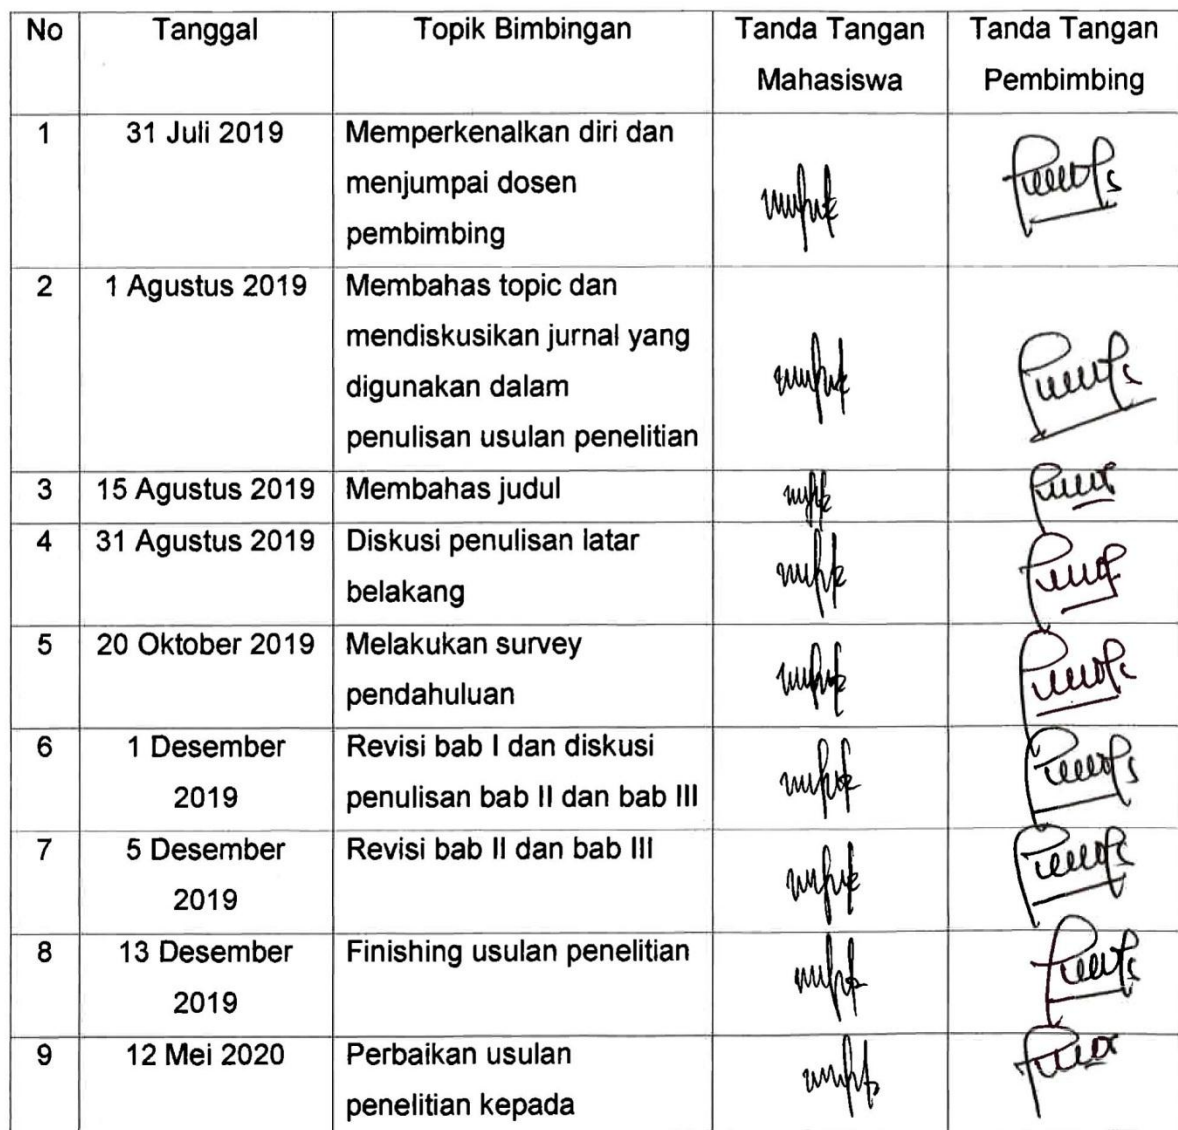 No Tanggal Topik Bimbingan Tanda Tangan Tanda Tangan
Mahasiswa Pembimbing
1 31 Juli 2019 Memperkenalkan diri dan
menjumpai dosen
pembimbing
2 1 Agustus 2019 Membahas topic dan
mendiskusikan jurnal yang
digunakan dalam
penulisan usulan penelitian
3 15 Agustus 2019 Membahas judul
4 31 Agustus 2019 Diskusi penulisan latar
belakang
5 20 Oktober 2019 Melakukan survey
pendahuluan
6 1 Desember Revisi bab I dan diskusi
2019 penulisan bab II dan bab III
7 5 Desember Revisi bab II dan bab III
2019
8 13 Desember Finishing usulan penelitian
2019
9 12 Mei 2020 Perbaikan usulan
penelitian kepada